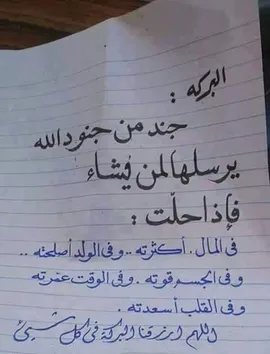 البركه :
جند من جنود الله
يرسلها لمن يشاء
فإذا حلّت :
فى المال . أكثرته .. وفى الولد أصلحته ..
وفى الجسم قوته . وفى الوقت عمّرته
وفى القلب أسعدته .
اللهم ارزقنا البركة فى كل شىء